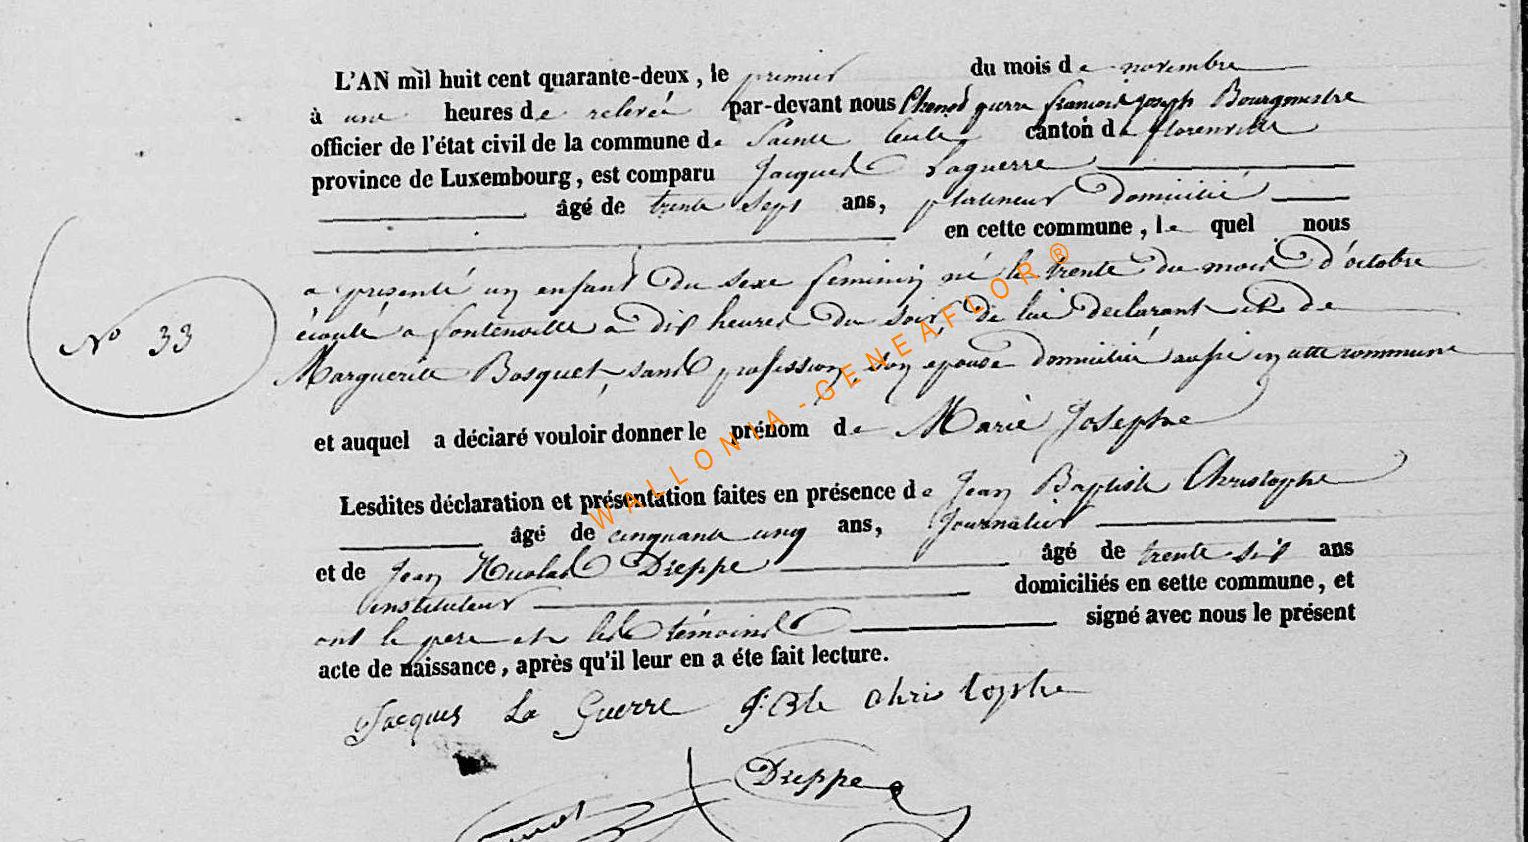 L'AN mil huit cent quarante-deux, le premier du mois de novembre
à une heures de relevée par-devant nous pierre françois joseph Bourgmestre
officier de l'état civil de la commune de Sainte Cecile canton de florenville
province de Luxembourg, est comparu Jacques Laguerre
âgé de trente sept ans, domicilié
en cette commune, le quel nous
a présenté un enfant du sexe feminin né le trente du mois d'octobre
écoulé a fontenoille a dix heures du soir de lui declarant et de
N° 33
Marguerite Bosquet, sans profession, son épouse domiciliée aussi en cette commune
et auquel a déclaré vouloir donner le prénom de Marie Josephe
Lesdites déclaration et présentation faites en présence de Jean Baptiste Christophe
âgé de cinquante cinq ans, Journalier
et de Jean Nicolas Dreppe âgé de trente six ans
instituteur domiciliés en cette commune, et
ont le pere et les témoins signé avec nous le présent
acte de naissance, après qu'il leur en a éte fait lecture.
Jacques La Guerre J. Bte christophe
Dreppe
WALLONIA-GENEAFLOR®